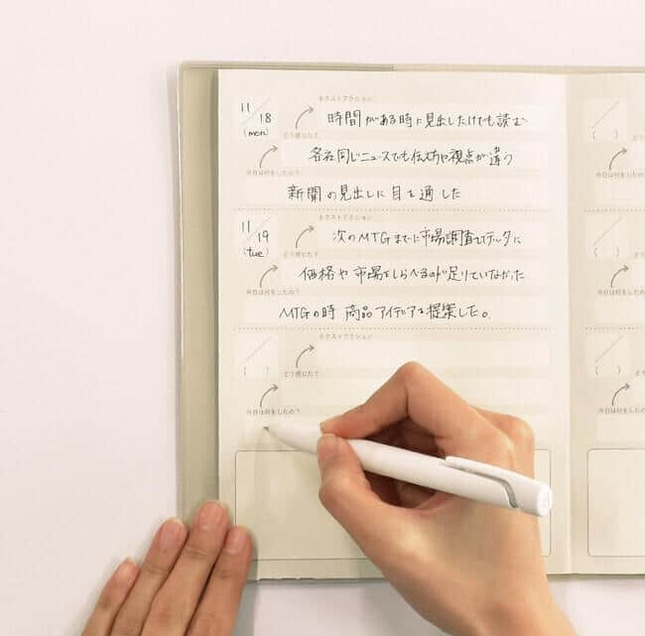 11/18
(mon)
ネクストアクション
時間がある時に見出しだけでも読む
どう感じた?
各社同じニュースでも伝え方や視点が違う
今日は何をしたの?
新聞の見出しに目を通した
11/19
(tue)
ネクストアクション
次のMTGまでに市場調査
どう感じた?
価格や市場をしらべるのが足りていなかった
今日は何をしたの?
MTGの時 商品アイデアを提案した。
/
( )
ネクストアクション
どう感じた?
今日は何をしたの?
/
( )
今日は
/
( )
今日は
/
( )
今日は